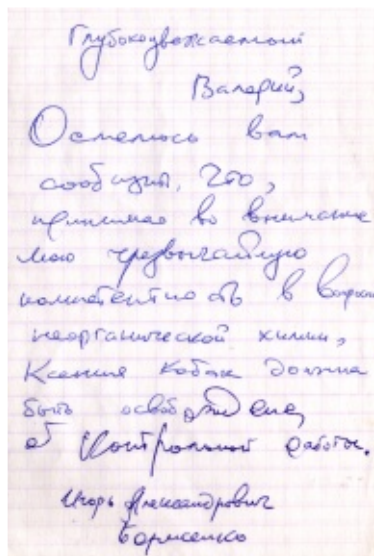 Глубокоуважаемый
Валерий,
Осмелюсь вам
сообщить, что,
принимая во внимание
мою чрезвычайную
компетентность в вопросах
неорганической химии,
Ксения Кобак должна
быть освобождена
от Контрольной работы.
Игорь Александрович